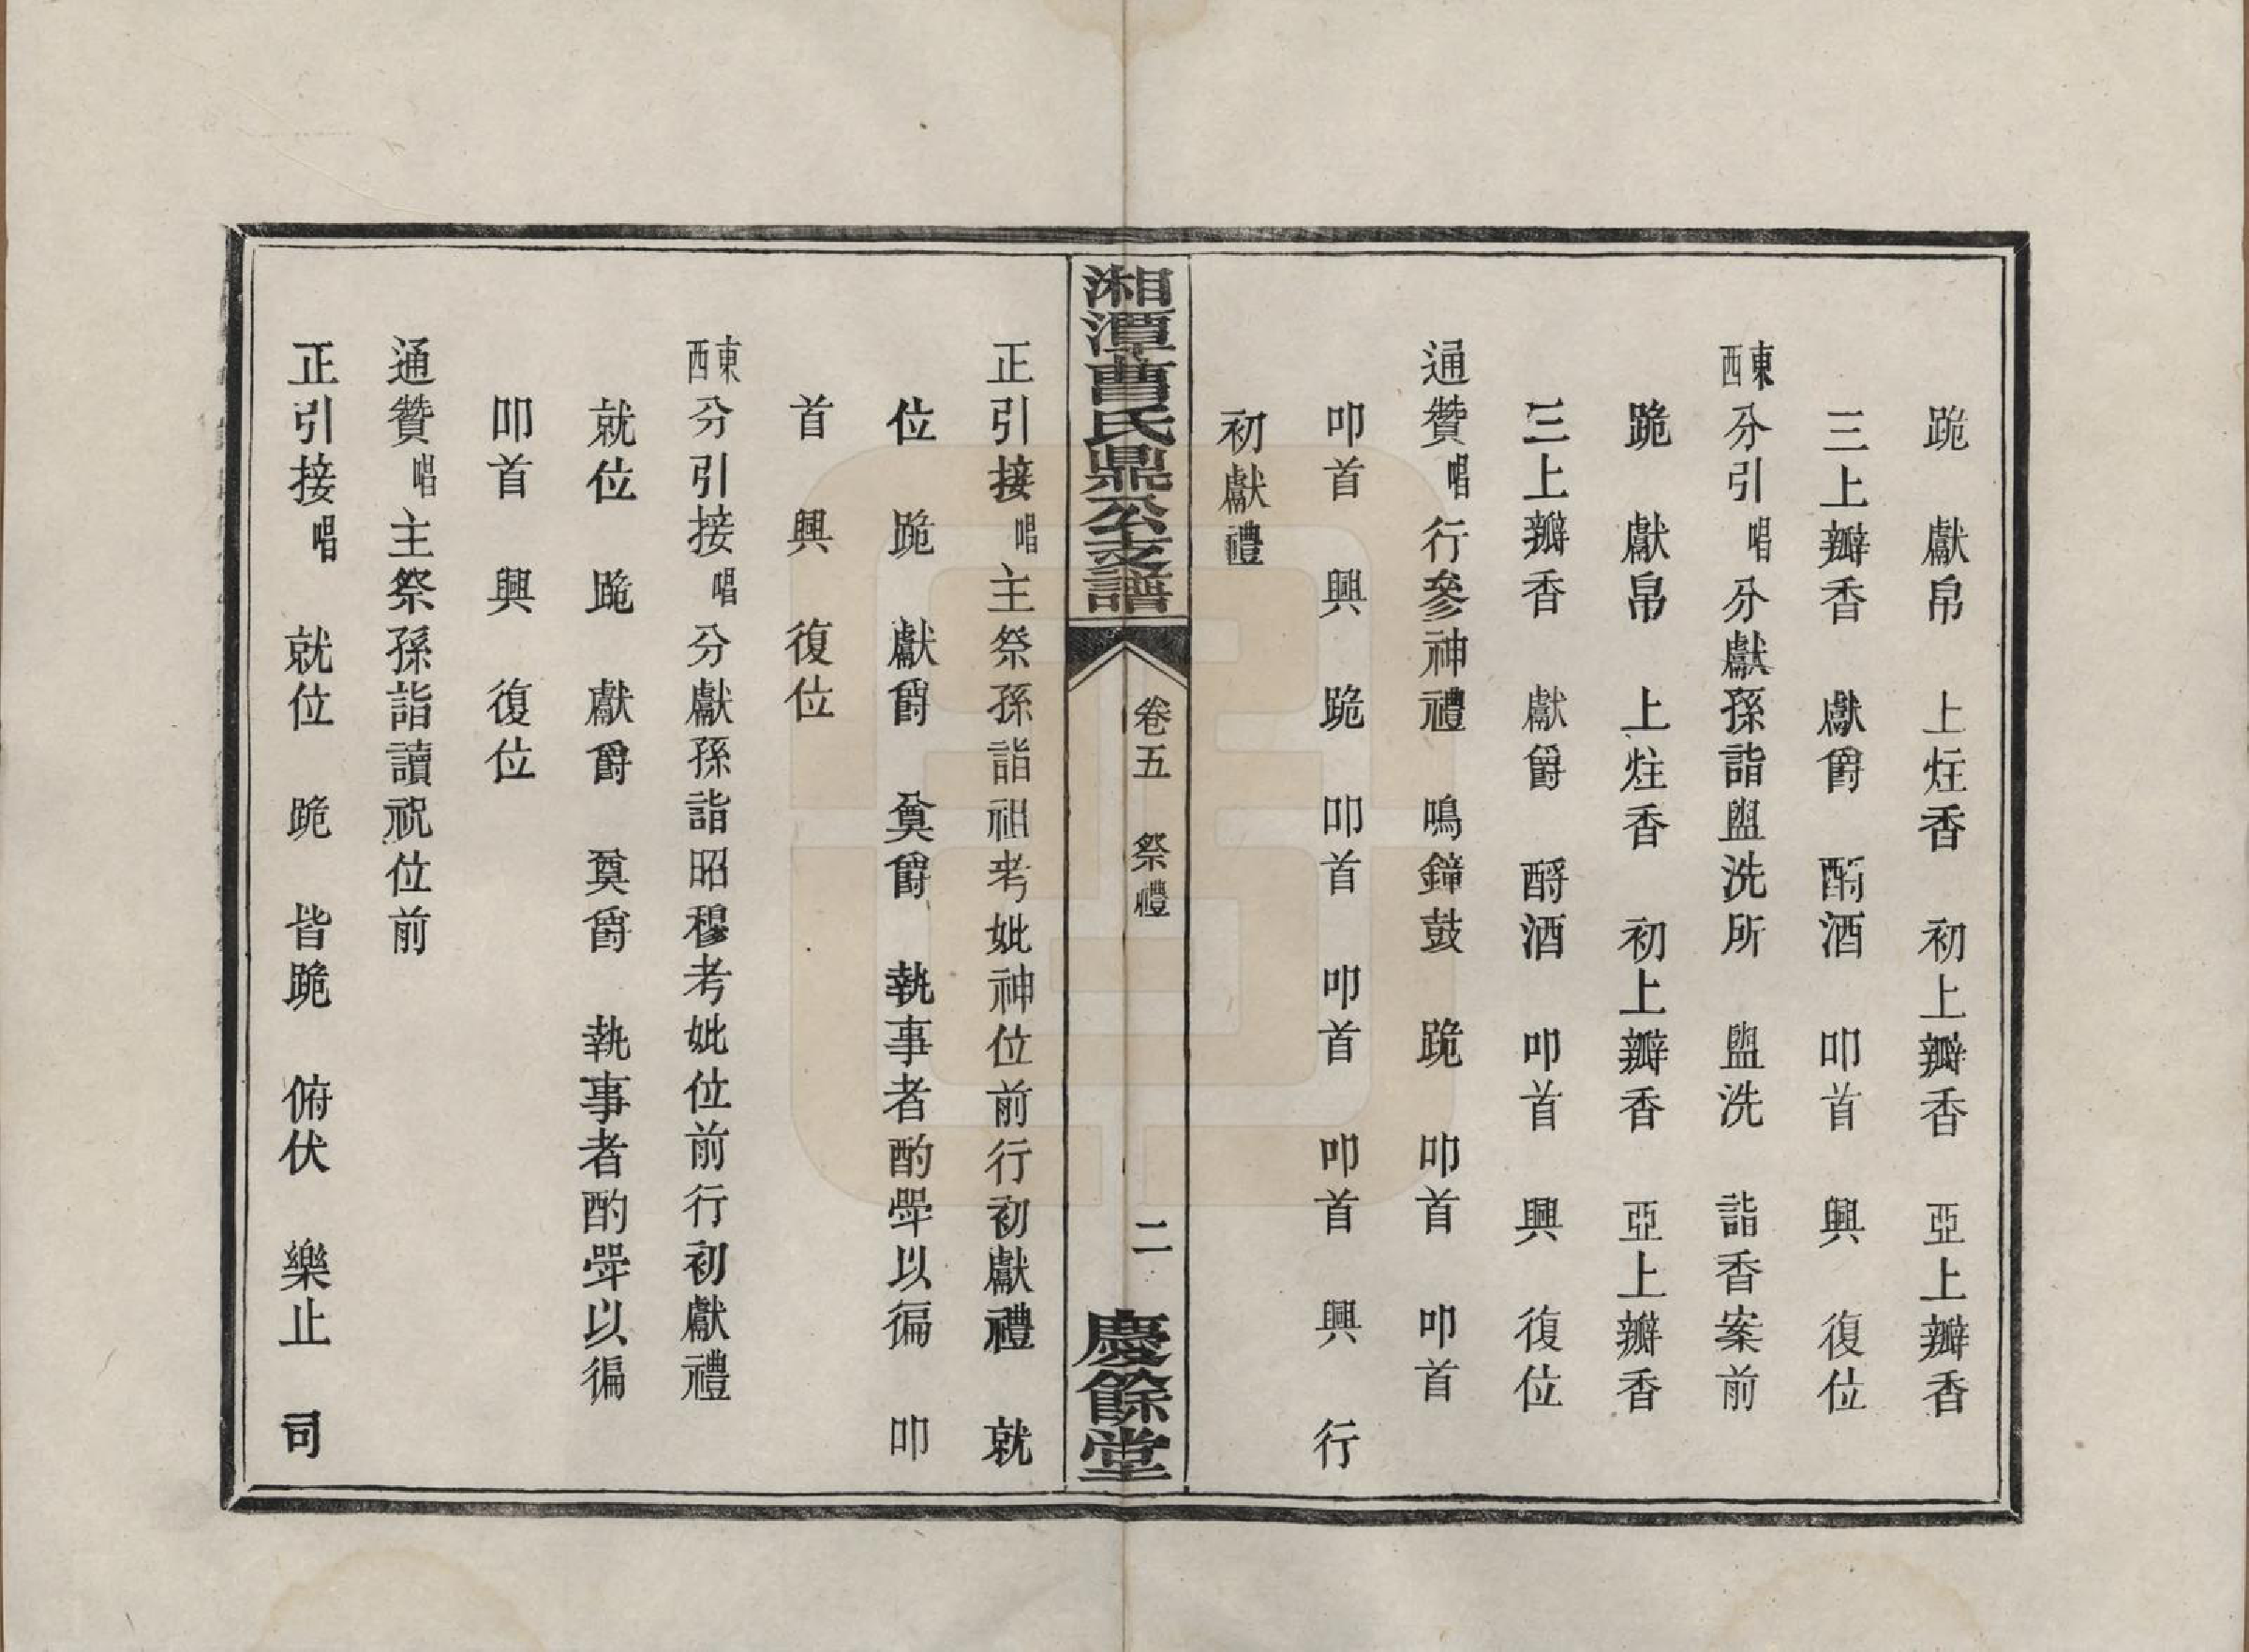 跪　獻帛　上炷香　初上瓣香　亞上瓣香
三上瓣香　獻爵　酹酒　叩首　興　復位
東西分引唱分獻孫詣盥洗所　盥洗　詣香案前
跪　獻帛　上炷香　初上瓣香　亞上瓣香
三上瓣香　獻爵　酹酒　叩首　興　復位
通贊唱行參神禮　鳴鐘鼓　跪　叩首　叩首
叩首　興　跪　叩首　叩首　叩首　興　行
初獻禮
湘潭曹氏鼎公支譜　卷五　祭禮　二　慶餘堂
正引接唱主祭孫詣祖考妣神位前行初獻禮　就
位　跪　獻爵　奠爵　執事者酌斝以徧　叩
首　興　復位
東西分引接唱分獻孫詣昭穆考妣位前行初獻禮
就位　跪　獻爵　奠爵　執事者酌斝以徧
叩首　興　復位
通贊唱主祭孫詣讀祝位前
正引接唱　就位　跪　皆跪　俯伏　樂止　司